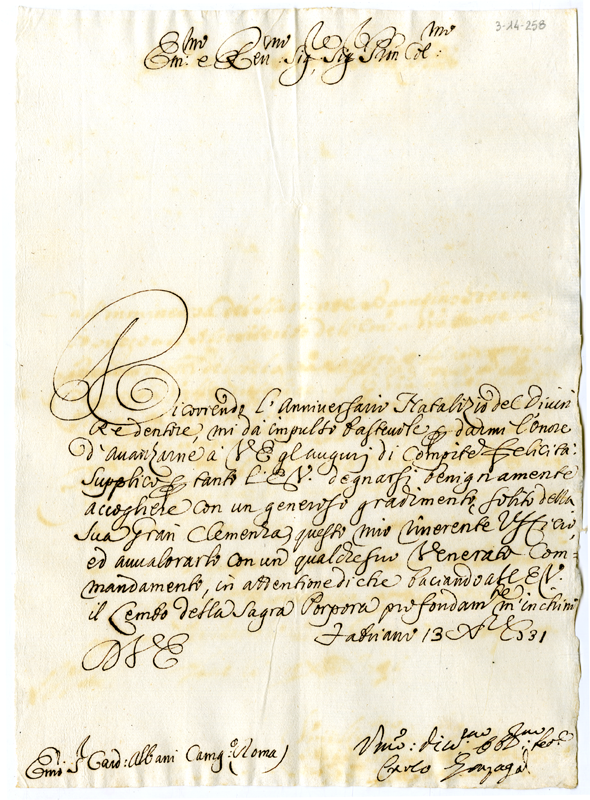 3-14-258
Em:mo e Reu:mo Sig:re Sig:re Pñ Col:mo
Ricorrendo l'Anniversario Natalizio del Divin
Redentore, mi dà impulso bastevole p darmi l'onore
d'avanzarne a V E gl'augurj di Compite felicità:
Supplico p tanto l'E V. degnarsi benignamente
accogliere con un generoso gradimento, solito della
Sua Gran Clemenza, questo mio riverente Ufficio,
ed avvalorarlo con un qualche suo Venerato Com=
mandamento, in attentione di che baciando all'E V.
il Lembo della Sagra Porpora profondam:te m'inchino
D V E
Fabriano 13 Xbre 1731
Em̃o S Card: Albani Camg:o (Roma)
Vmo: Obb:mo
Carlo Gonzaga